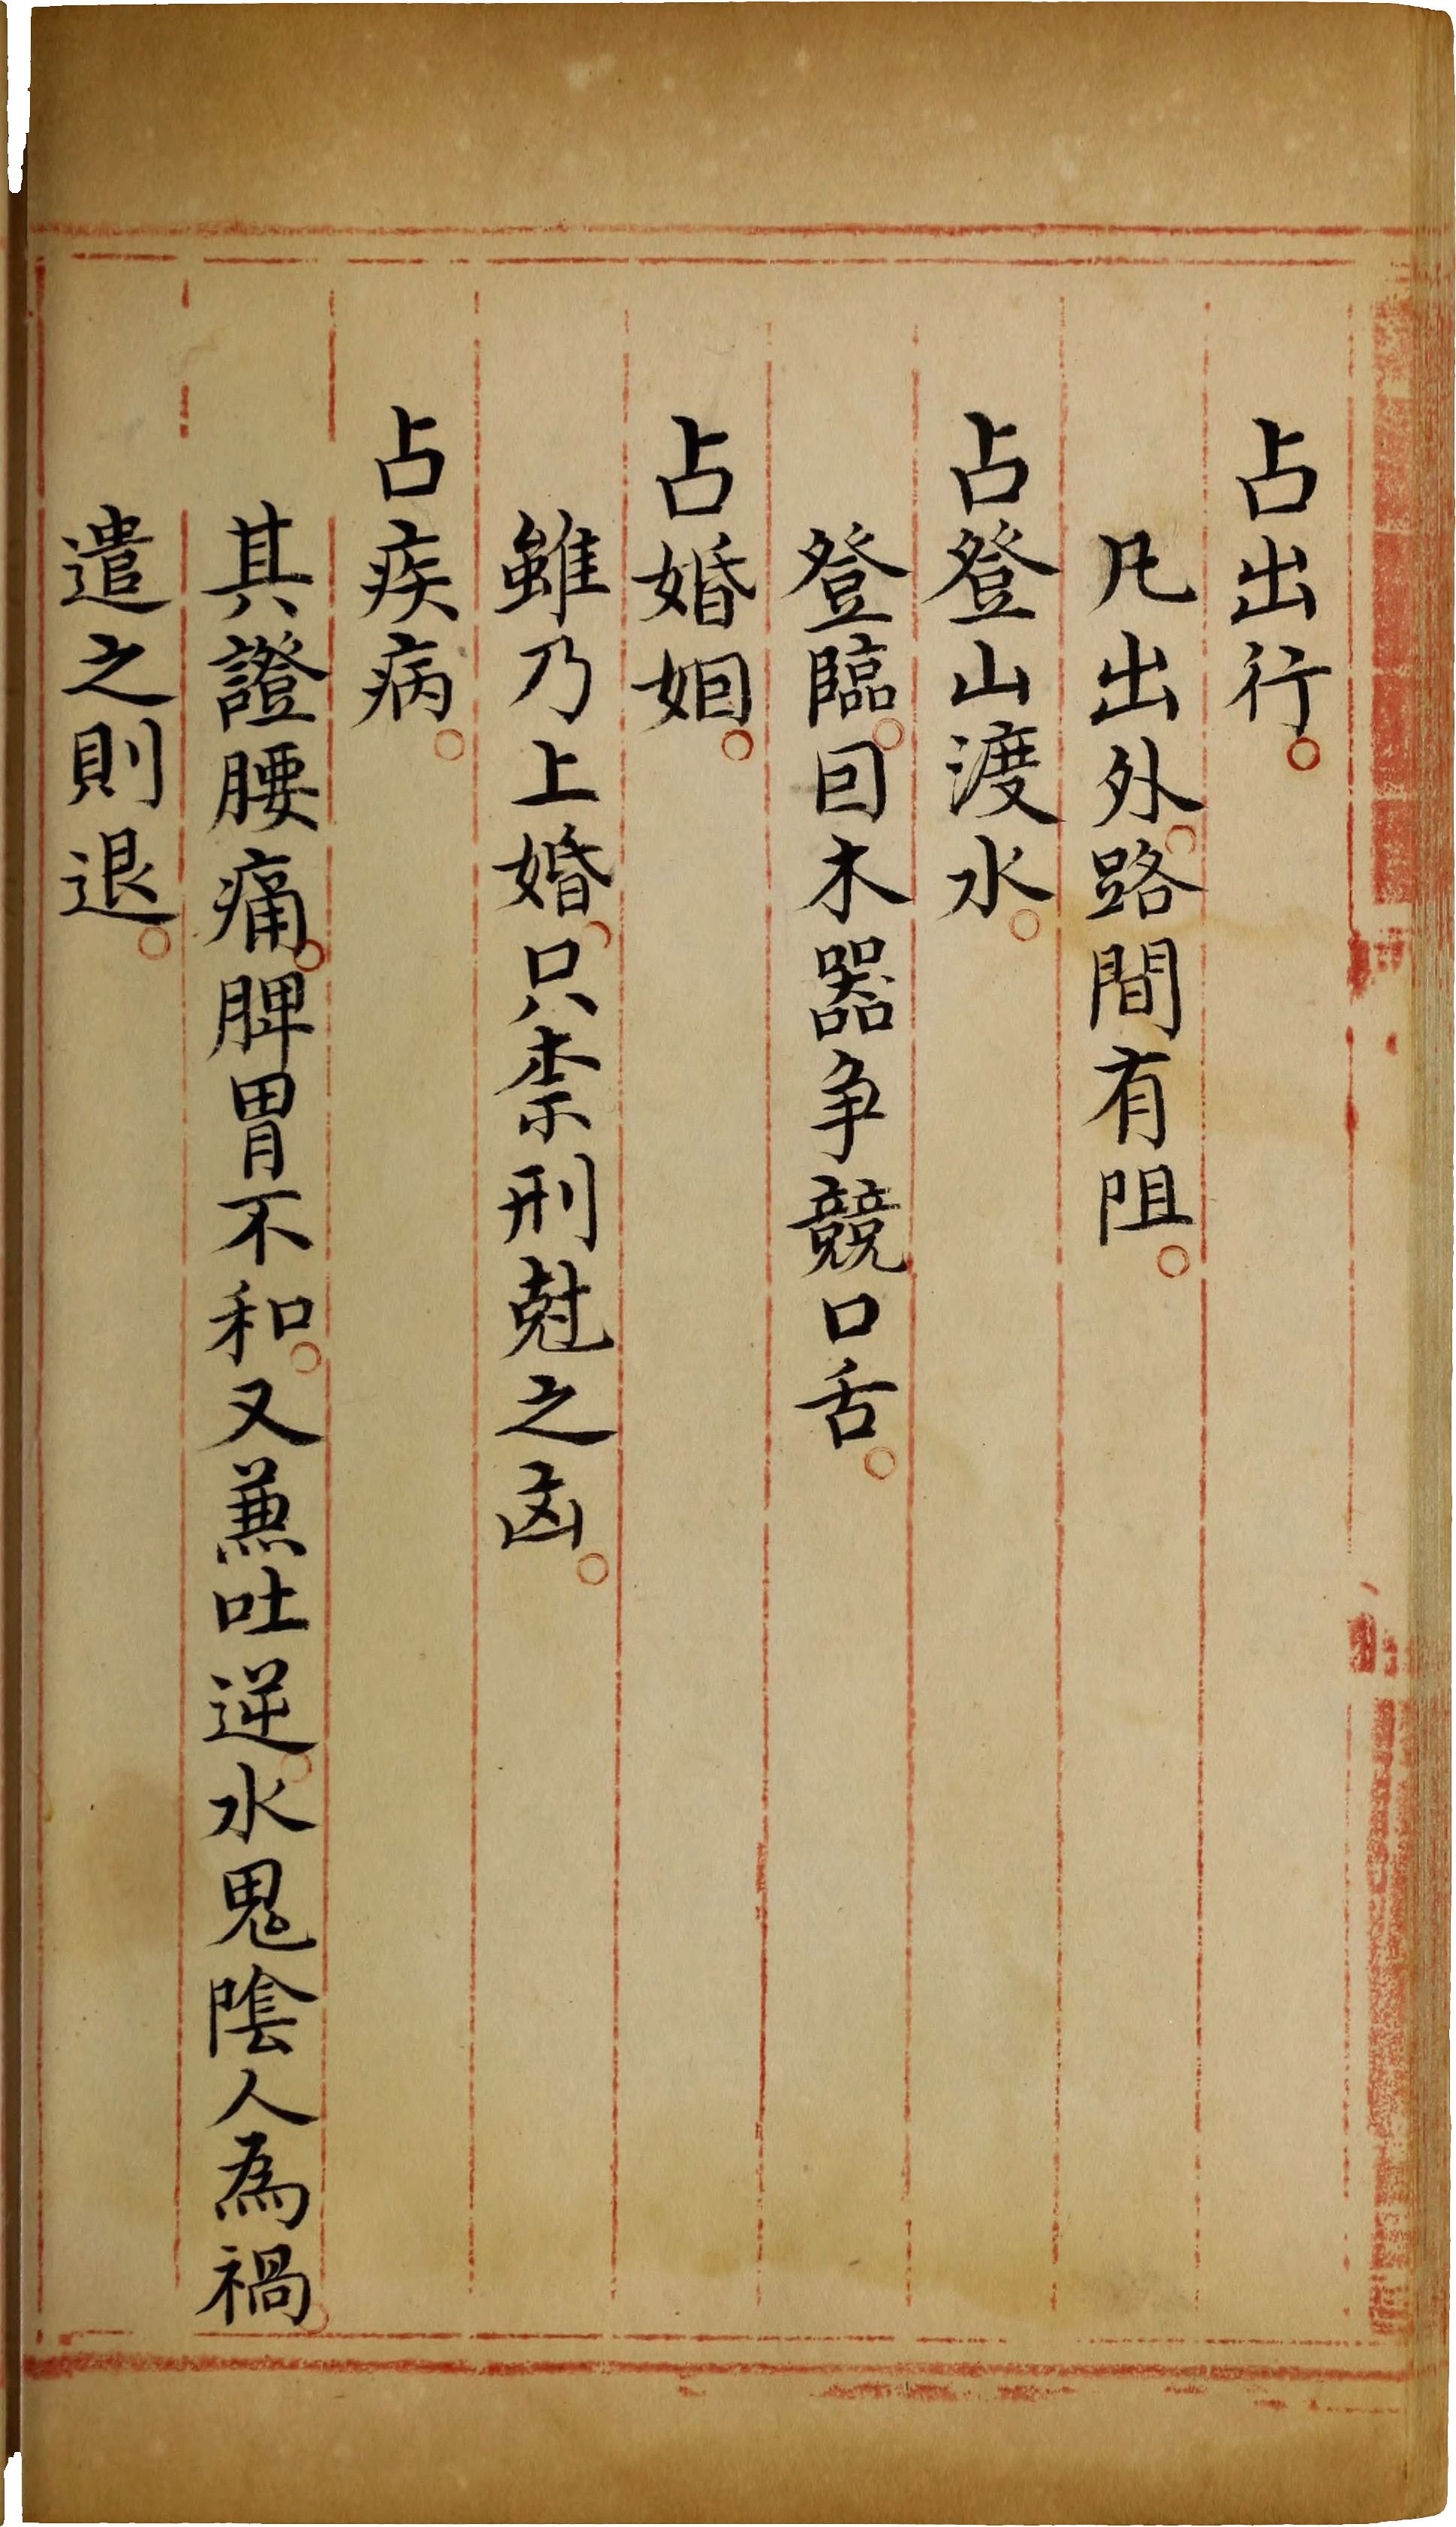 占出行。
凡出外。路間有阻。
占登山渡水。
登臨。回木器争競口舌。
占婚姻。
雖乃上婚。只柰刑尅之凶。
占疾病。
其證腰痛。脾胃不和。又兼吐逆。水鬼陰人為禍。
遣之則退。